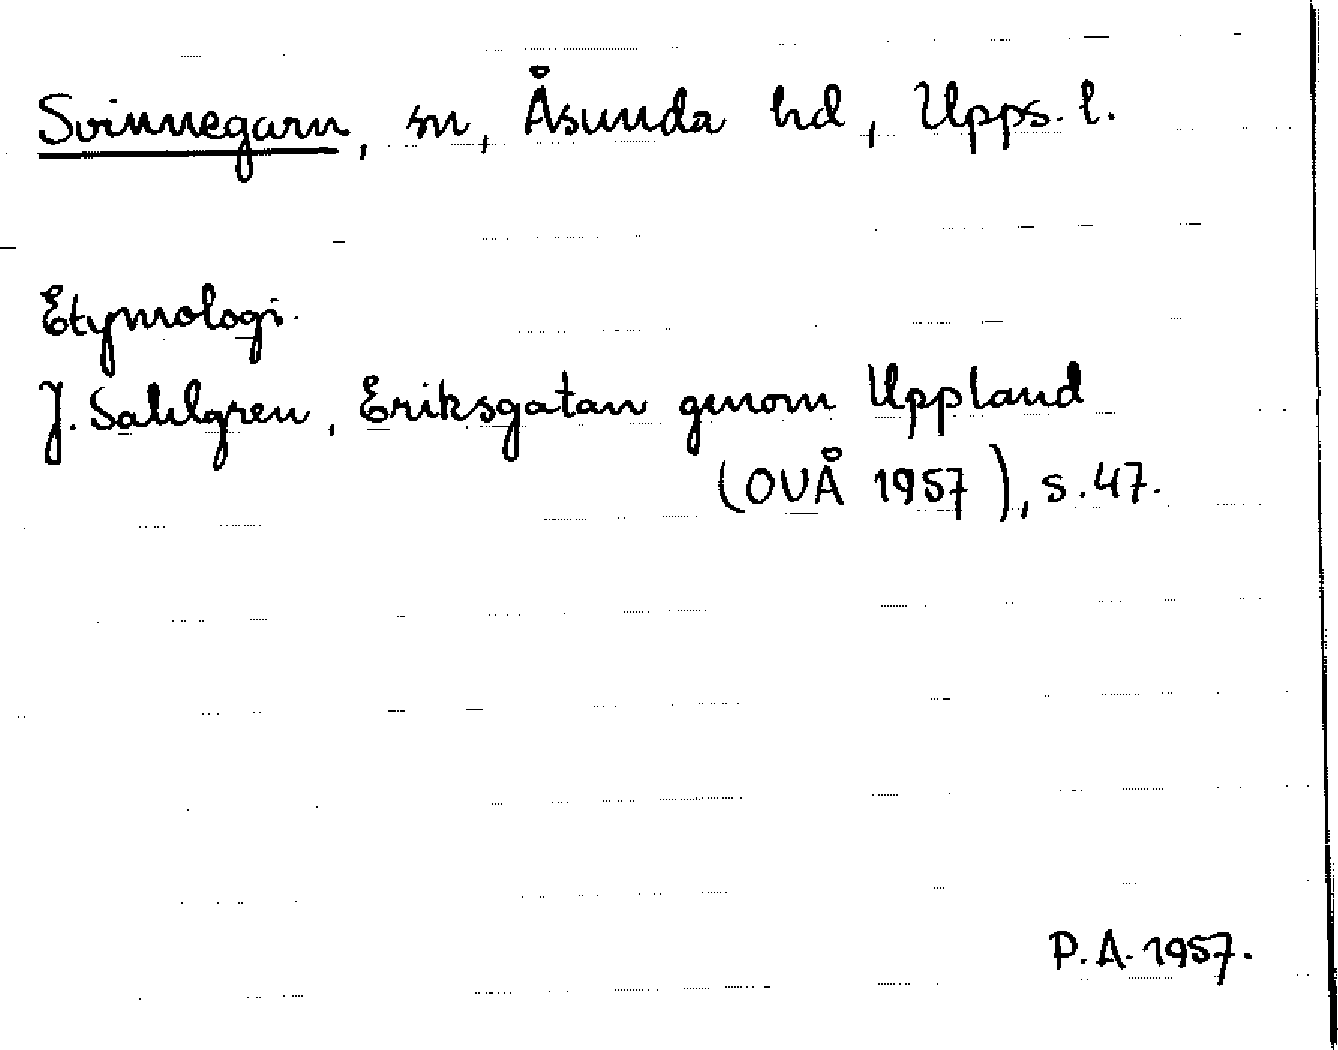 Svinnegarn, sn, Åsunda hd, Upps. l.
Etymologi.
J. Sahlgren, Eriksgatan genom Uppland
(OUÅ 1957), s. 47.
P. A. 1957.